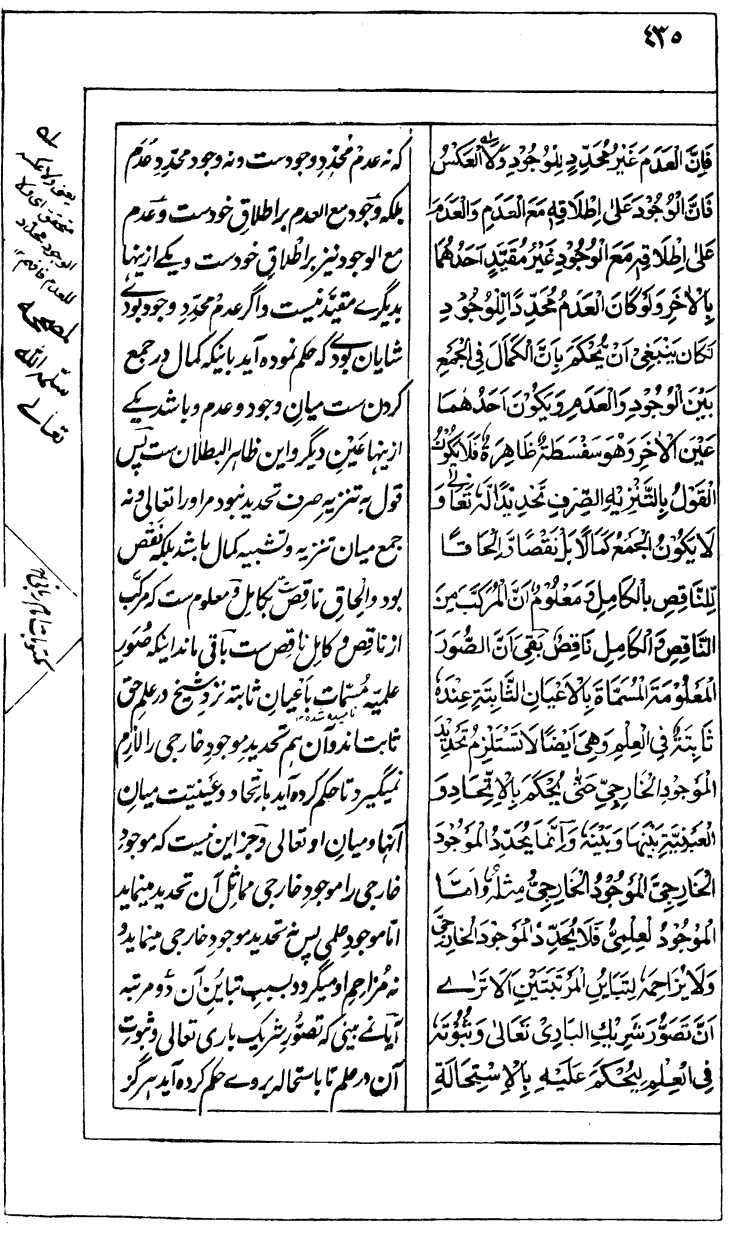 ٤٣٥
فَاِنَّ الْعَدَمَ غَيْرُ مُحَدِّدٍ لِلْوُجُوْدِ وَلَا الْعَكْسُ
فَاِنَّ الْوُجُوْدَ عَلٰى اِطْلَاقِهٖ مَعَ الْعَدَمِ وَالْعَدَمَ
عَلٰى اِطْلَاقِهٖ مَعَ الْوُجُوْدِ غَيْرُ مُقَيَّدٍ اَحَدُهُمَا
بِالْاٰخَرِ وَلَوْ كَانَ الْعَدَمُ مُحَدِّدًا لِلْوُجُوْدِ
لَكَانَ يَنْبَغِيْ اَنْ يُّحْكَمَ بِاَنَّ الْكَمَالَ فِى الْجَمْعِ
بَيْنَ الْوُجُوْدِ وَالْعَدَمِ وَيَكُوْنَ اَحَدُهُمَا
عَيْنَ الْاٰخَرِ وَهُوَ سَفْسَطَةٌ ظَاهِرَةٌ فَلَا يَكُوْنُ
الْقَوْلُ بِالتَّنْزِيْهِ الصِّرْفِ تَحْدِيْدًا لَهٗ تَعَالٰى وَ
لَا يَكُوْنُ الْجَمْعُ كَمَالًا بَلْ نَقْصًا وَّاِلْحَاقًا
لِّلنَّاقِصِ بِالْكَامِلِ وَمَعْلُوْمٌ اَنَّ الْمُرَكَّبَ مِنَ
النَّاقِصِ وَالْكَامِلِ نَاقِصٌ بَقِيَ اَنَّ الصُّوَرَ
الْمَعْلُوْمَةَ الْمُسَمَّاةَ بِالْاَعْيَانِ الثَّابِتَةِ عِنْدَهٗ
ثَابِتَةٌ فِى الْعِلْمِ وَهِيَ اَيْضًا لَا تَسْتَلْزِمُ تَحْدِيْدَ
الْمَوْجُوْدِ الْخَارِجِيِّ حَتّٰى يُحْكَمَ بِالْاِتِّحَادِ وَ
الْعَيْنِيَّةِ بَيْنَهَا وَبَيْنَهٗ وَاِنَّمَا يُحَدِّدُ الْمَوْجُوْدَ
الْخَارِجِيَّ الْمَوْجُوْدُ الْخَارِجِيُّ مِثْلُهٗ وَاَمَّا
الْمَوْجُوْدُ لْعِلْمِيُّ فَلَا يُحَدِّدُ الْمَوْجُوْدَ الْخَارِجِيَّ
وَلَا يُزَاحِمُهٗ لِتَبَايُنِ الْمَرْتَبَتَيْنِ اَلَا تَرٰے
اَنَّ تَصَوُّرَ شَرِيْكِ الْبَارِيْ تَعَالٰى وَثُبُوْتَهٗ
فِى الْعِلْمِ لِيُحْكَمَ عَلَيْهِ بِالْاِسْتِحَالَةِ
که نه عدم محدِّدِ وجودست و نه وجود محدِّدِ عدم
بلکه وجود مع العدم بر اطلاق خودست و عدم
مع الوجود نیز بر اطلاق خودست و یکے ازینها
بدیگرے مقیّد نیست و اگر عدم محدِّدِ وجود بودے
شایان بودے که حکم نموده آید باینکه کمال در جمع
کردن ست میانِ وجود و عدم و باشد یکے
ازینها عینِ دیگر و این ظاهر البطلان ست پس
قول به تنزیهِ صرف تحدید نبود مر او را تعالی و نه
جمع میان تنزیه و تشبیه کمال باشد بلکه نقص
بود و الحاقِ ناقص بکامل و معلوم ست که مرکّب
از ناقص و کامل ناقص ست باقی ماند اینکه صُوَرِ
علمیّه مُسمّات باعیانِ ثابته نزدِ شیخ در علمِ حق
نامیده شده
ثابت اند و آن هم تحدیدِ موجودِ خارجی را لازم
نمیگیرد تا حکم کرده آید باتحاد و عینیّت میانِ
آنها و میانِ او تعالی و جز این نیست که موجودِ
خارجی را موجودِ خارجی مماثلِ آن تحدید مینماید
امّا موجودِ علمی پس نه تحدیدِ موجودِ خارجی مینماید و
نه مُزاحمِ او میگردد بسببِ تباینِ آن دو مرتبه
آیا نے بینی که تصوّرِ شریکِ باری تعالی و ثبوتِ
آن در علم تا باستحاله بر وے حکم کرده آید هرگز
یعنی ولا عکسه
متحقق ای ولا
الوجود محدد
للعدم فافهم ١٢
لمصححه
سلمه الله
تعالے
مکتوبات امام ربانی